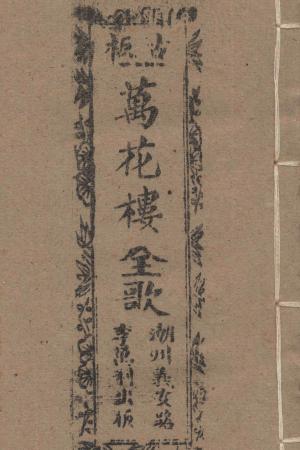 古板
萬花樓全歌
潮州義安路
李萬利出板